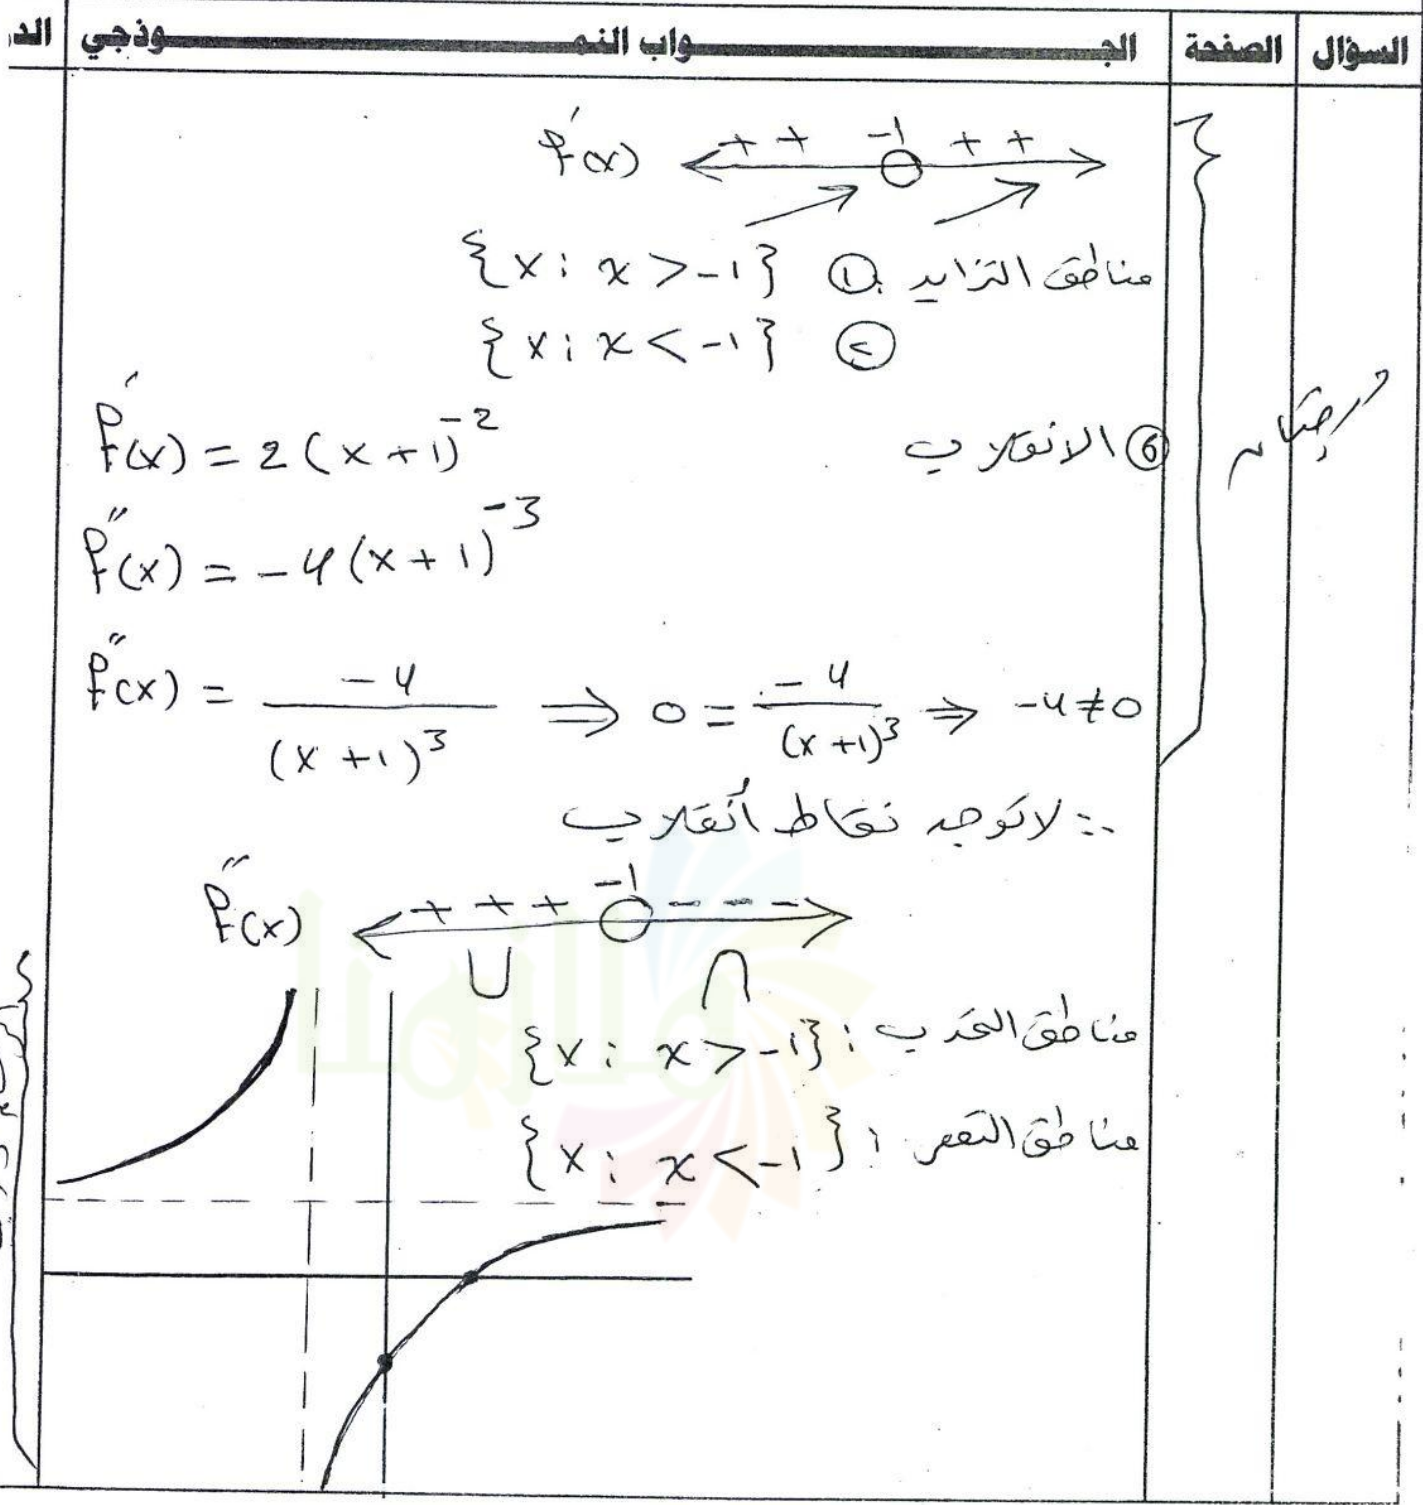 السؤال الصفحة الجـــواب النمـــوذجي
f'(x) + + -1 + +
مناطق التزايد ① {x : x > -1}
② {x : x < -1}
⑥ الانقلاب
f'(x) = 2(x+1)^-2
درجتان
f''(x) = -4(x+1)^-3
f''(x) = -4/(x+1)^3 ⇒ 0 = -4/(x+1)^3 ⇒ -4 ≠ 0
∴ لا توجد نقاط أنقلاب
f''(x) + + + -1 - - -
∪ ∩
مناطق التحدب : {x : x > -1}
مناطق التقعر : {x : x < -1}